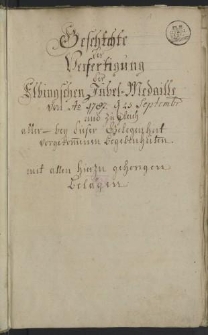 Geschichte
der
Verfertigung
der
Elbingschen Jubel-Medaille
von Ao 1737. d 23 September
und zugleich
aller bey dieser Gelegenheit
vorgekommenen Begebenheiten
mit allen hiezu gehörigen
Belagen